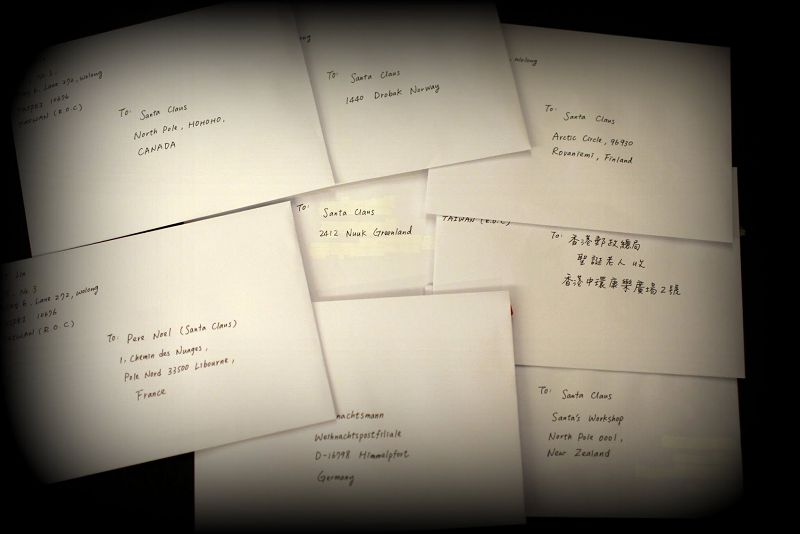 No. 2,
Lane 272, Wolong
TAIPEI 10676
TAIWAN (R.O.C)
To: Santa Claus
North Pole, HOHOHO,
CANADA
To: Santa Claus
1440 Drobak Norway
Wolong
To: Santa Claus
Arctic Circle, 96930
Rovaniemi, Finland
To: Santa Claus
2412 Nuuk Greenland
TAIWAN (R.O.C)
To: 香港郵政總局
聖誕老人 收
香港中環康樂廣場2號
Lin
No. 3
Lane 272, Wolong
TAIPEI 10676
TAIWAN (R.O.C)
To: Pere Noel (Santa Claus)
1, Chemin des Nuages,
Pole Nord 33500 Libourne,
France
nachtsmann
Weihnachtspostfiliale
D-16798 Himmelpfort
Germany
To: Santa Claus
Santa's Workshop
North Pole 0001,
New Zealand